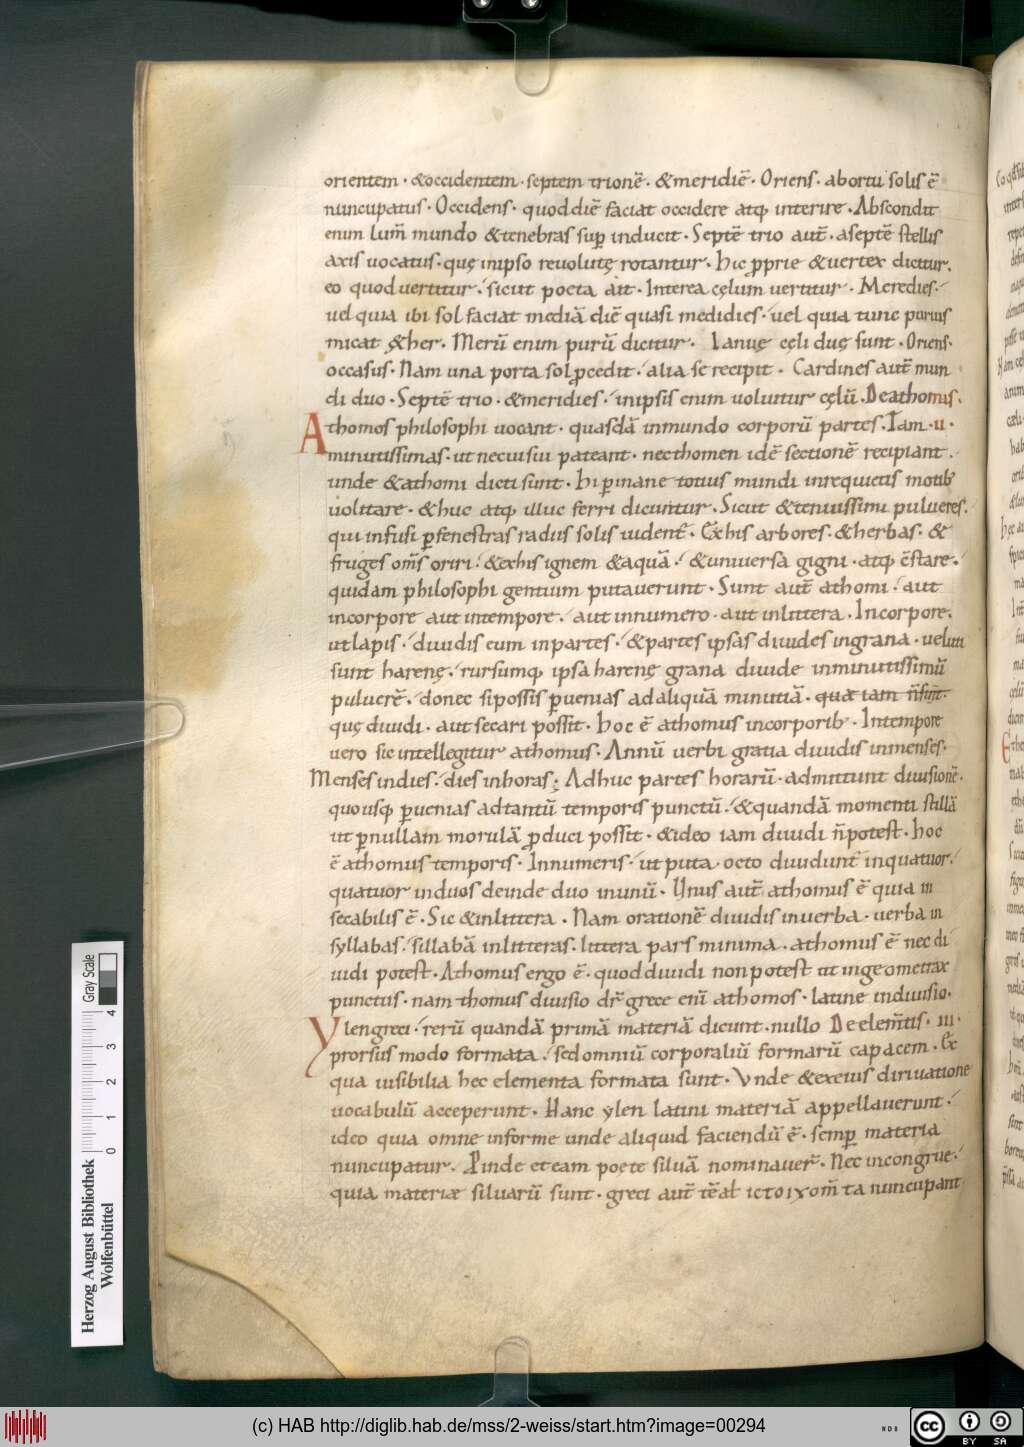 orientem · &occidentem · septem trionē · &meridiē · Oriens · abortu solis ē
nuncupatus · Occidens · quoddiē faciat occidere atq; interire · Abscondit
enim lum̄ mundo &tenebras suꝑ inducit · Septē trio aut̄ · aseptē stellis
axis uocatus · quę inipso reuolutę rotantur · hic ꝓprie &uertex dicitur ·
eo quod uertitur · sicut poeta ait · Interea cęlum uertitur · Meredies ·
uel quia ibi sol faciat mediā diē quasi medidies · uel quia tunc purius
micat ęther · Merū enim purū dicitur · Ianuę cęli duę sunt · Oriens ·
occasus · Nam una porta sol ꝓcedit · alia se recipit · Cardines aut̄ mun
di duo · Septē trio · &meridies · inipsis enim uoluitur cęlū · De athomis ·
Athomos philosophi uocant · quasdā inmundo corporū partes · Tam · II ·
minutissimas · ut necuisui pateant · necthomen idē sectionē recipiant ·
unde &athomi dicti sunt · hi ꝑinane totius mundi inrequietis motib;
uolitare · &huc atq; illuc ferri dicuntur · Sicut &tenuissimi pulueres ·
qui infusi ꝑfenestras radiis solis uident᷑ · Exhis arbores · &herbas · &
fruges om̄s oriri · &exhis ignem &aquā · &uniuersa gigni · atq; c̄stare ·
quidam philosophi gentium putauerunt · Sunt aut̄ athomi · aut
incorpore aut intempore · aut innumero · aut inlittera · Incorpore ·
utlapis · diuidis eum inpartes · &partes ipsas diuides ingrana · ueluti
sunt harenę · rursumq; ipsa harenę grana diuide inminutissimū
puluerē · donec sipossis ꝑuenias adaliquā minutiā · quæ iam n̄ sunt ·
quę diuidi · aut secari possit · hoc ē athomus incorporib; · Intempore
uero sic intellegitur athomus · Annū uerbi gratia diuidis inmenses ·
Menses indies · dies inhoras ; Adhuc partes horarū · admittunt diuisionē ·
quousq; ꝑuenias adtantū temporis punctū · &quandā momenti stillā
ut ꝑnullam morulā ꝓduci possit · &ideo iam diuidi n̄potest · hoc
ē athomus temporis · Innumeris · ut puta · octo diuidunt᷑ inquatuor ·
quatuor induos deinde duo inunū · Unus aut̄ athomus ē quia in
secabilis ē · Sic &inlittera · Nam orationē diuidis inuerba · uerba in
syllabas · sillabā inlitteras · littera pars minima · athomus ē nec di
uidi potest · Athomus ergo ē · quod diuidi non potest ut in geometriæ
punctus · nam thomus diuisio dr̄ grece eni athomos · latine indiuisio ·
Ylengreci · rerū quandā primā materiā dicunt · nullo De elem̄tis · III ·
prorsus modo formata · sed omniū corporaliū formarū capacem · Ex
qua uisibilia hec elementa formata sunt · Vnde &exeius diriuatione
uocabulū acceperunt · Hanc ylen latini materiā appellauerunt ·
ideo quia omne informe unde aliquid faciendū ē · semꝑ materia
nuncupatur · Pinde et eam poete siluā nominauer̄ · Nec incongrue ·
quia materiæ siluarū sunt · greci aut̄ nuncupant
Herzog August Bibliothek
Wolfenbüttel
0 1 2 3 4 Gray Scale
(c) HAB http://diglib.hab.de/mss/2-weiss/start.htm?image=00294
cc BY SA